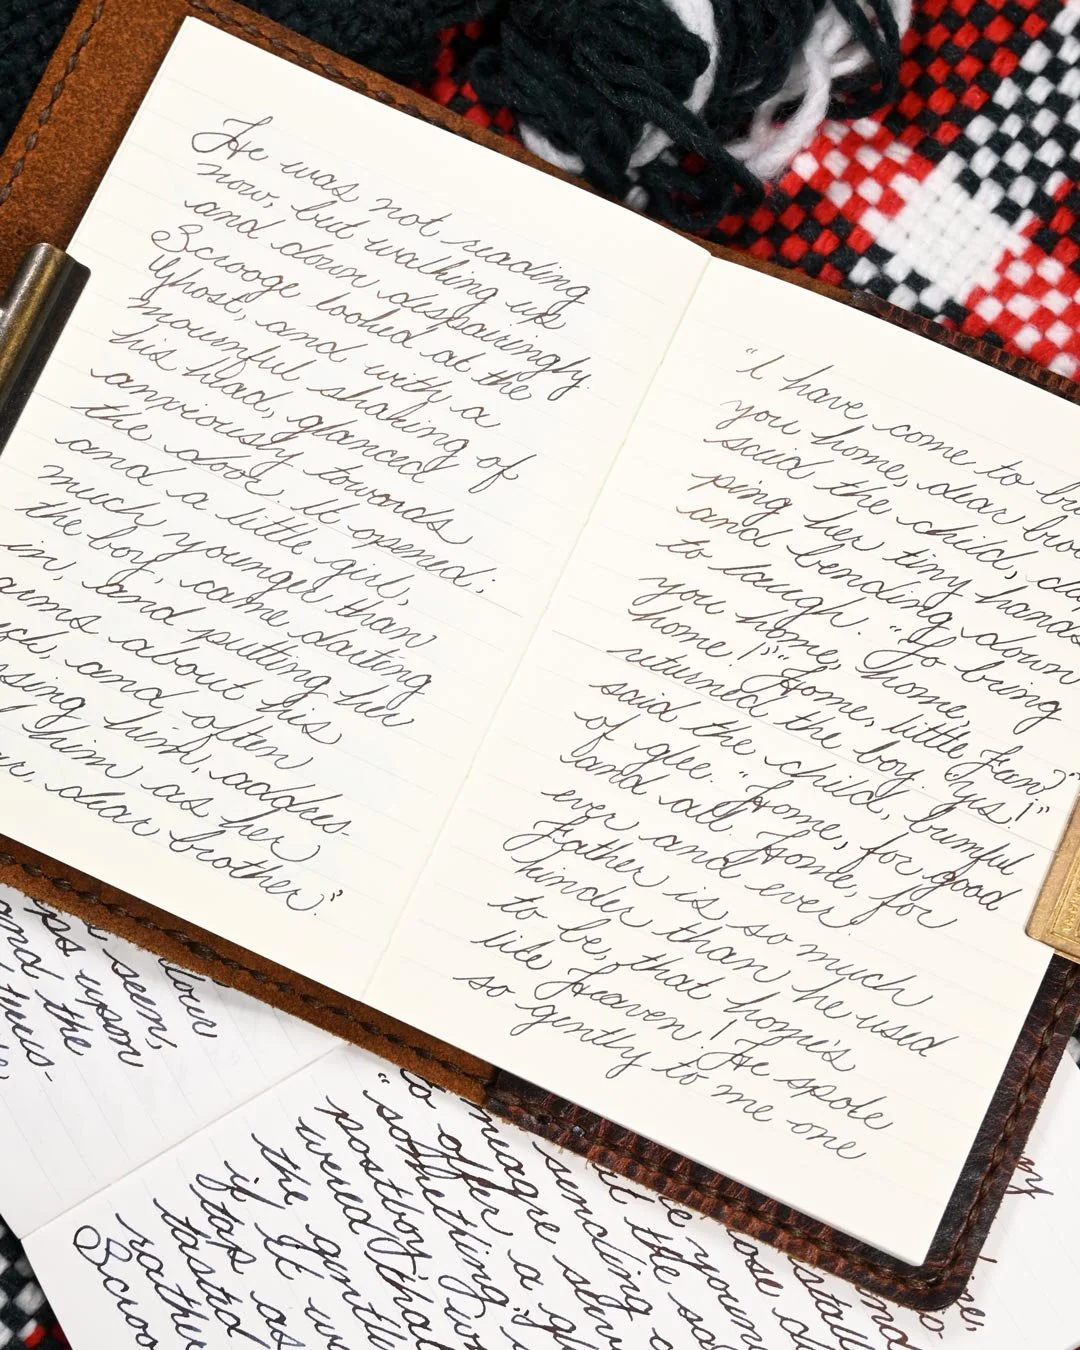 He was not reading
now, but walking up
and down despairingly.
Scrooge looked at the
Ghost, and with a
mournful shaking of
his head, glanced
anxiously towards
the door. It opened;
and a little girl,
much younger than
the boy, came darting
in, and putting her
arms about his
and often
him, addres-
him as her
dear brother."
"I have come to
you home, dear
said the child,
ping her tiny hands
and bending down
to laugh. "To bring
you home, home,
home!" "Home, little Fan?"
returned the boy. "Yes!"
said the child, brimful
of glee. "Home, for good
and all. Home, for
ever and ever.
Father is so much
kinder than he used
to be, that home's
like Heaven! He spoke
so gently to me one
your
seem,
ps upon
and the
"
to offer a
meagre
something
postboy,
would
the gentle
if it
tap as
tasted
rather
Scroo
sending